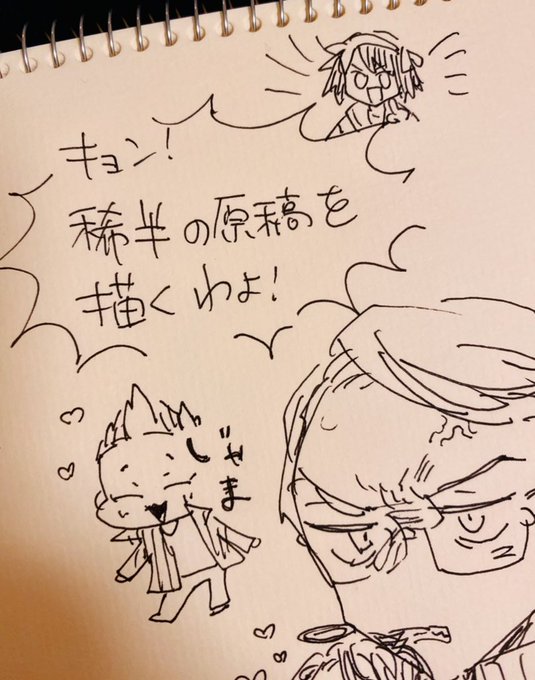 キョン!
稀半の原稿を
描くわよ!
じゃま